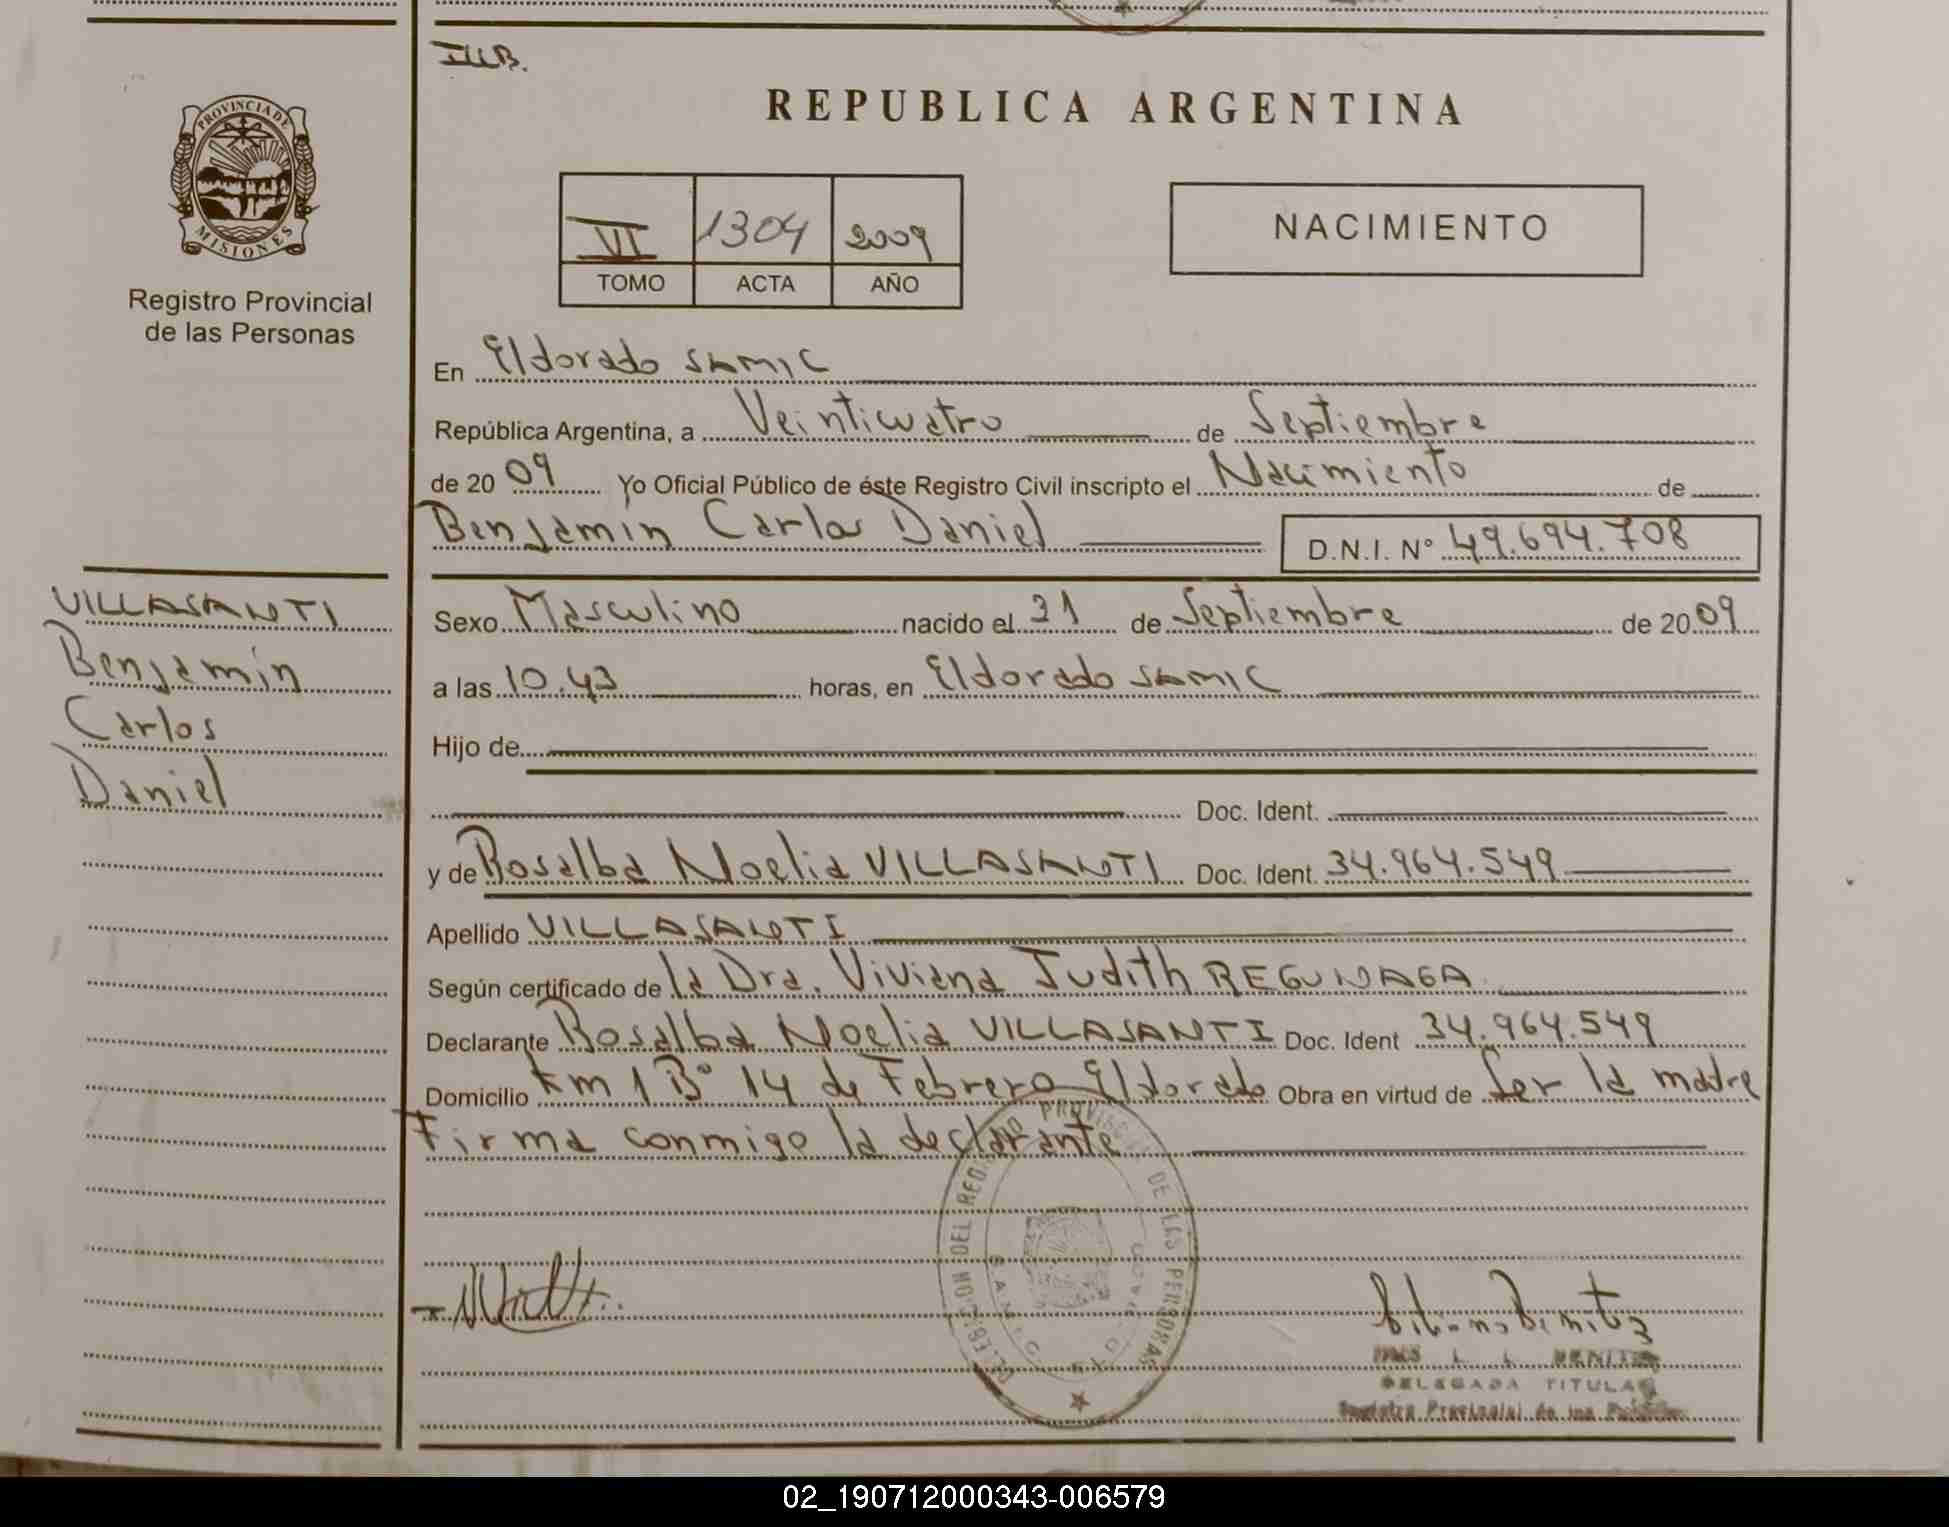 ILLB.
PROVINCIA DE
MISIONES
Registro Provincial
de las Personas
REPUBLICA ARGENTINA
VI 1304 2009
TOMO ACTA AÑO
NACIMIENTO
En Eldorado SAMIC
República Argentina, a Veinticuatro de Septiembre
de 2009 Yo Oficial Público de éste Registro Civil inscripto el Nacimiento de
Benjamín Carlos Daniel D.N.I. N° 49.694.708
VILLASANTI
Benjamín
Carlos
Daniel
Sexo Masculino nacido el 21 de Septiembre de 2009
a las 10.43 horas, en Eldorado SAMIC
Hijo de
Doc. Ident.
y de Rosalba Noelia VILLASANTI Doc. Ident. 34.964.549
Apellido VILLASANTI
Según certificado de la Dra. Viviana Judith REGUNAGA
Declarante Rosalba Noelia VILLASANTI Doc. Ident 34.964.549
Domicilio Km 1 B° 14 de Febrero Eldorado Obra en virtud de Ser la madre
Firma conmigo la declarante
DELEGACION DEL REGISTRO PROVINCIAL DE LAS PERSONAS
SAMIC ELDORADO
BENITEZ
DELEGADA TITULAR
Registro Provincial de las Personas
02_190712000343-006579